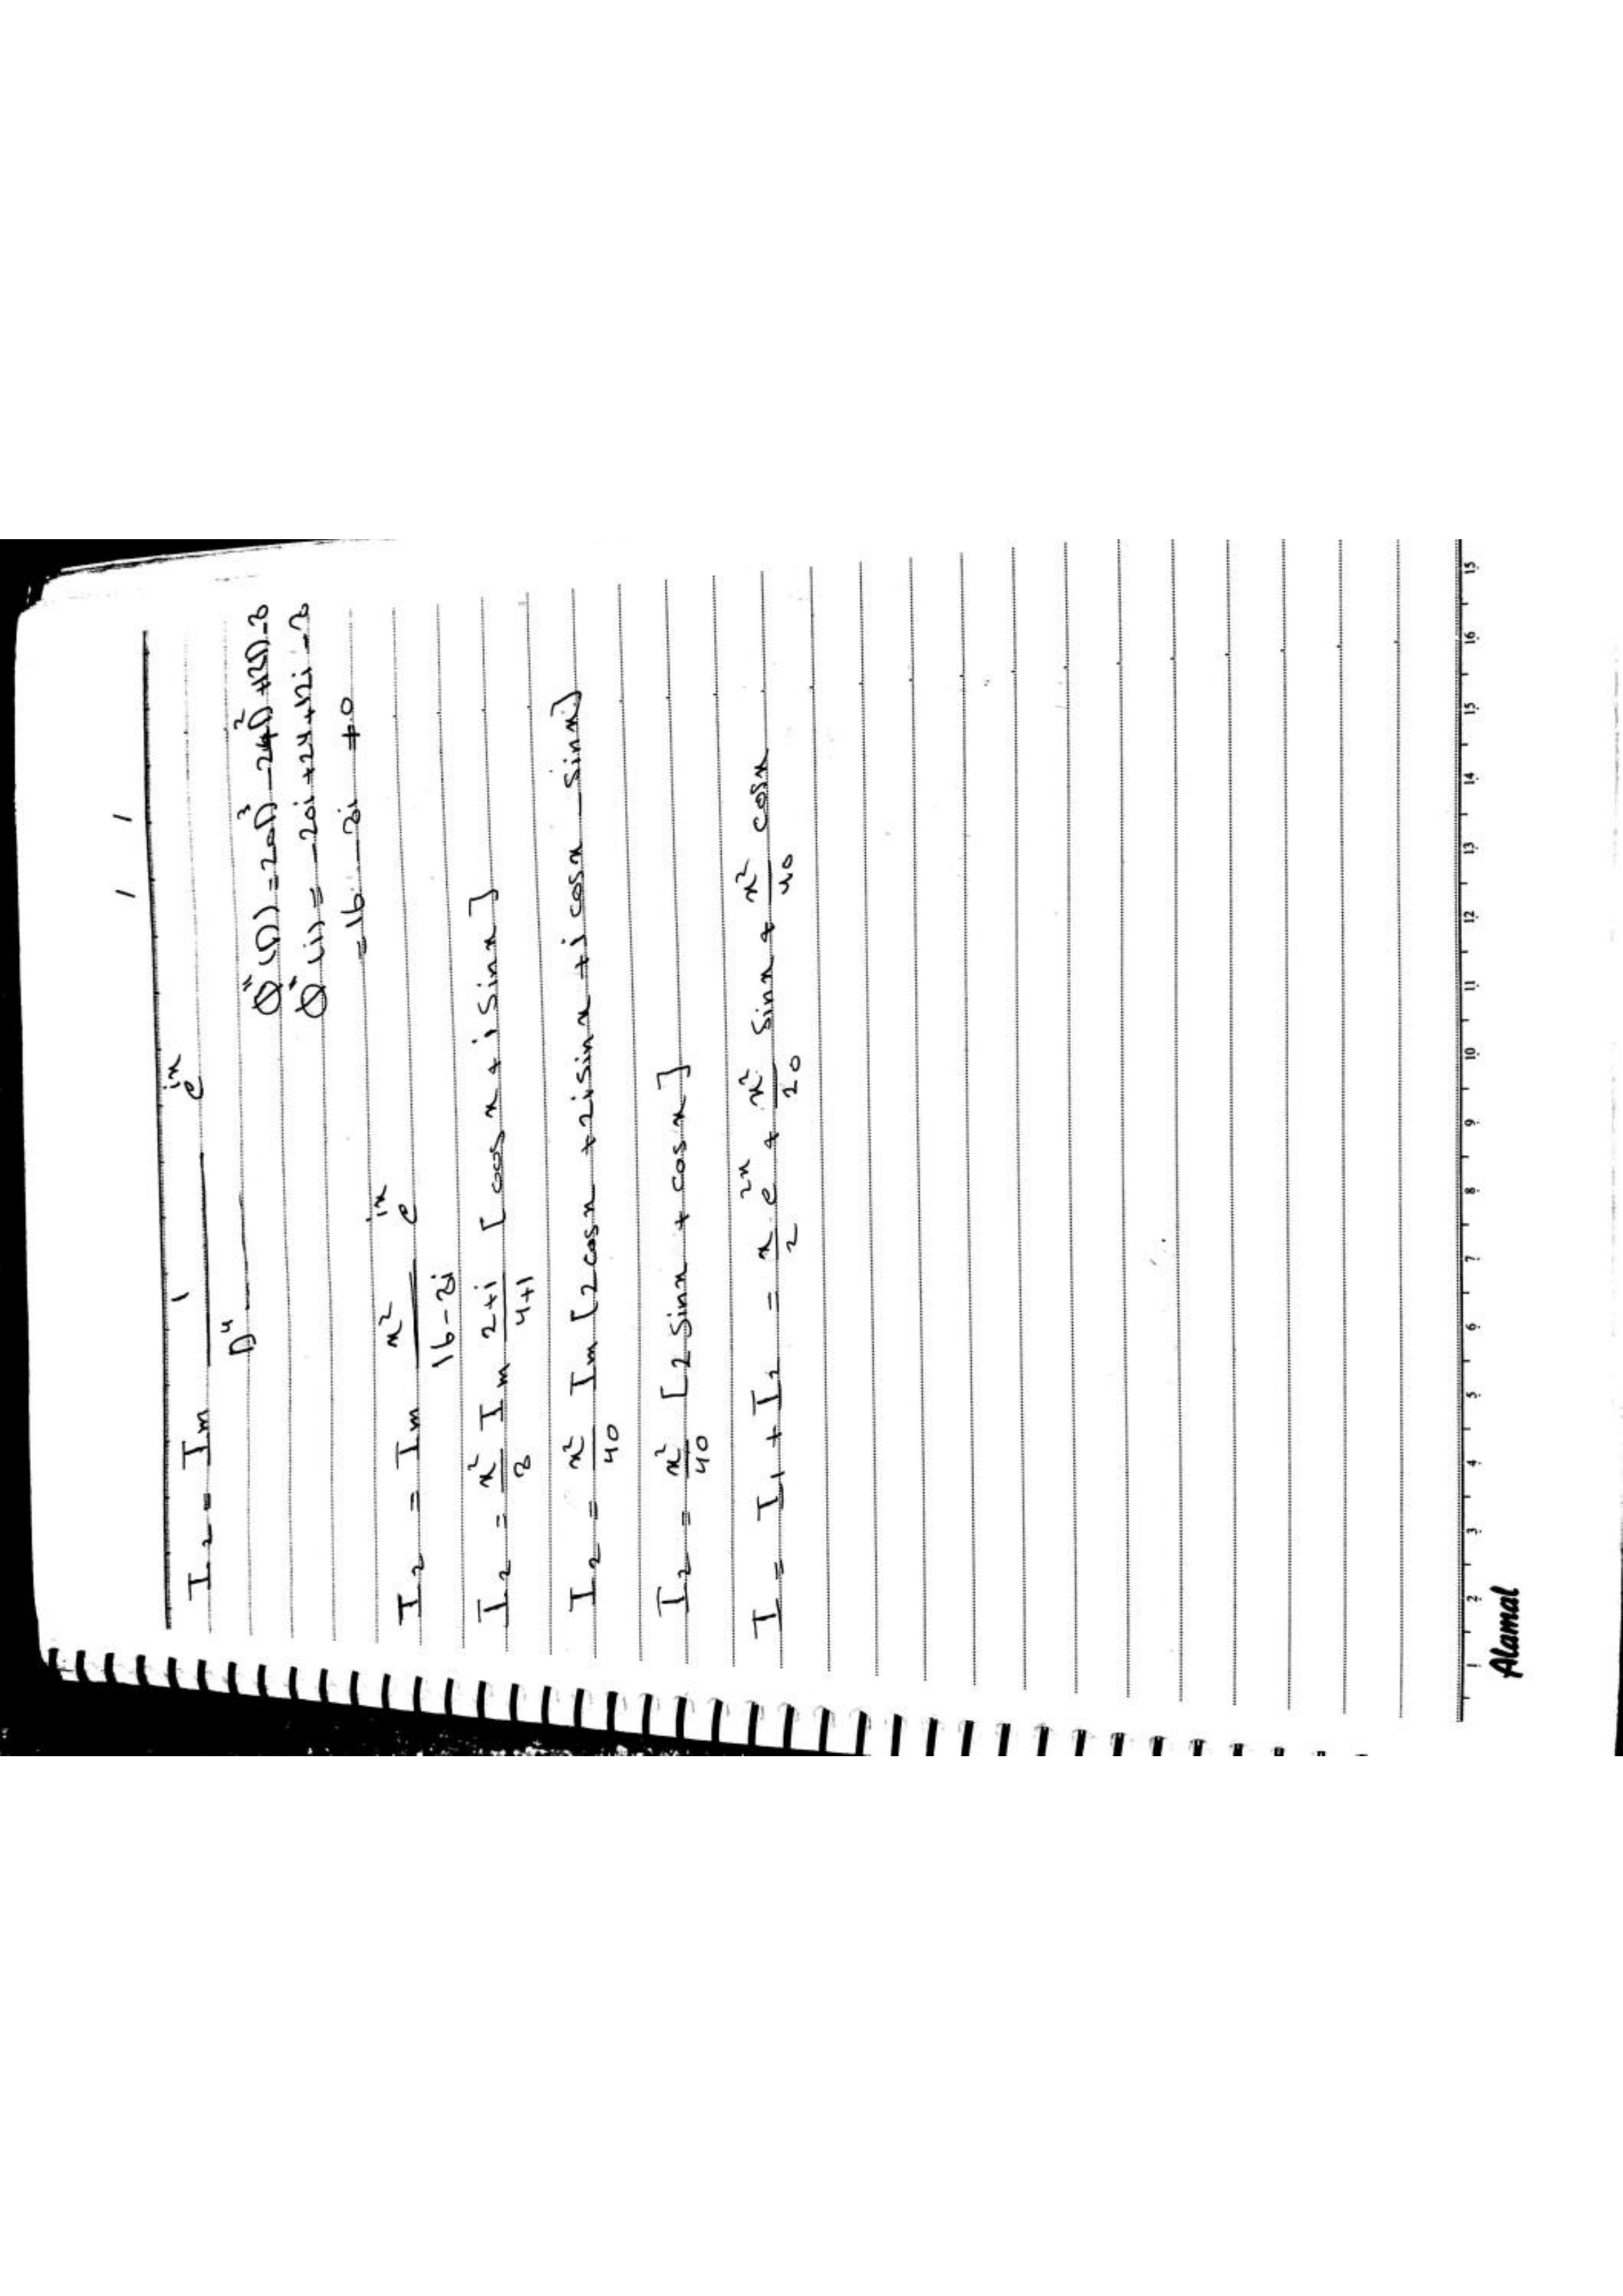 / /
I₂ = Im 1/D⁴ e^{ix}
Q''(D) = 20D³ - 24D² + 12D - 8
Q''(i) = -20i + 24 + 12i - 8
= 16 - 8i ≠ 0
I₂ = Im x²/(16-8i) e^{ix}
I₂ = x²/8 Im (2+i)/(4+1) [cos x + i sin x]
I₂ = x²/40 Im [2cos x + 2i sin x + i cos x - sin x]
I₂ = x²/40 [2 sin x + cos x]
I = I₁ + I₂ = x/2 e^{2x} + x²/20 sin x + x²/40 cos x
1 2 3 4 5 6 7 8 9 10 11 12 13 14 15 16 15
Alamal